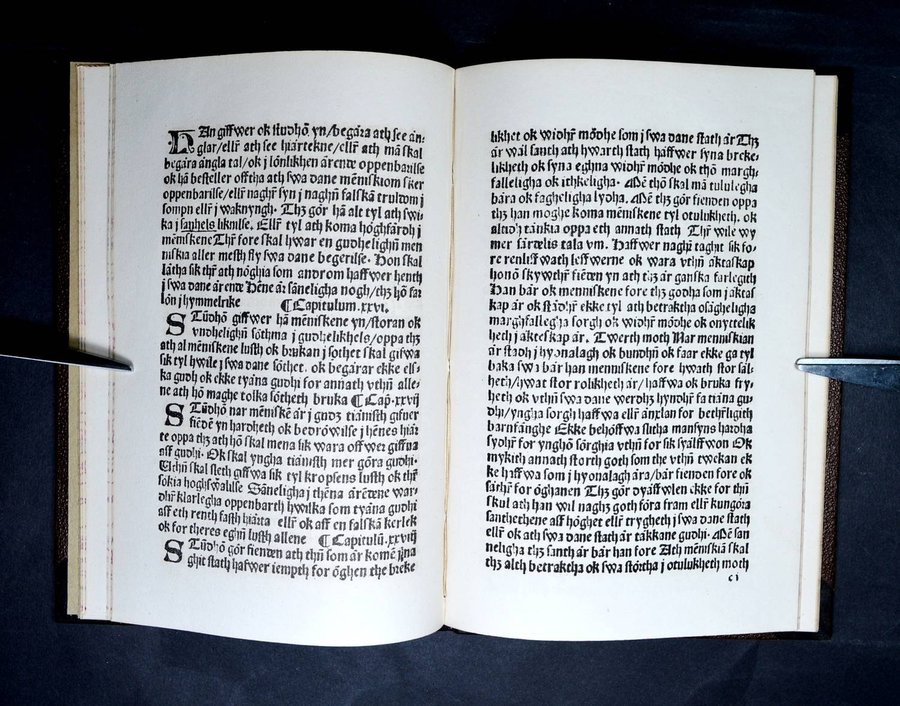 HAn giffwer ok stūdhō yn/begära ath see än-
glar/ellr̄ ath see hiärtekne/ellr̄ ath mā skal
begära ängla tal/ok j lönlikhen ärente oppenbarilse
ok hā besteller offta swa dane mēniskiom sker
oppenbarilse/ellr̄ naghr̄ syn j naghn̄ falskā truldom j
sompn ellr̄ j waknyngh. Thꝫ gör hā alt tyl ath swi-
ka j sanhels liknilse. Ellr̄ tyl ath koma höghfärdh j
mēniskene Thr̄ fore skal hwar en gudheligh̄n men
niskia aller mesth fly swa dane begerilse. Hon skal
lätha sik thr̄ ath nöghia som androm haffwer henth
j swa dane ärente Hēne är sāneligha nogh/thꝫ hō får
lön j hymmelrike ¶Capitulum.xxvi.
STūdhō giffwer hā mēniskene yn/storan ok
vndhelighn̄ söthma j gudhelikhels/oppa thꝫ
ath al mēniskene lusth ok brukan j söthet skal gifwa
sik tyl hwile j swa dane söthet. ok begärar ekke els-
ka gudh ok ekke tyäna gudhi for annath vthn̄ alle-
ne ath hō maghe tolka söthets bruka ¶Cap̄.xxvij
STūdhō nar mēniskē är j gudz tiänisth gifuer
fiēdē yn hardheth ok bedröwilse j hēnes hiär
te oppa thꝫ ath hō skal mena sik wara offwer giffna
aff gudhi. Ok skal yngha tiänisth mer göra gudhi.
Wthn̄ skal sleth giffwa sik tyl kropsens lusth ok thr̄
sökia hoghswalilse Sānelighaj thēna ärētene war-
dhr̄ klarlegha oppenbarth hwilka som tyäna gudhi
aff eth renth fasth hiärta ellr̄ ok aff en falskā kerlek
ok for theres eghn̄ lusth allene ¶Capitulū.xxviij
STūdhō gör fienden ath thn̄ som är komē jīna
ghit stath hafwer iempth for öghen the brēke
likhet ok widhr̄ mödhe som j swa dane stath är Thꝫ
är wäl santh ath hwarth stath haffwer syna breke-
likheth ok syna eghna widhr̄ mödhe ok thō margh-
falleligha ok ithkeligha. Mē thō skal mā tululegha
bära ok fagheligha lydha. Mē thꝫ gör fienden oppa
thꝫ han moghe koma mēniskene tyl otulukheth. ok
altidh tänkia oppa eth annath stath Thr̄ wile wy
mer särdelis tala vm. Haffwer naghꝫ taghit sik fo-
re renliffwath leffwerne ok wara vthn̄ äktaskap
honō skywthr̄ fiēdēn yn ath thꝫ är ganska farlegith
Han bär ok mēniskene fore thꝫ godha som j äktas
kap är ok städhr̄ ekke tyl ath betraktha osägheligha
marghfallegha sorgh ok widhr̄ mödhe ok onyttelik
heth j äkteskap är. Twerth moth Nar menniskian
är stadh j hyonalagh ok bundhn̄ ok faar ekke ga tyl
baka swa bär han menniskene fore hwath stor säl-
heth/hwat stor rolikheth är/haffwa ok bruka fry-
heth ok vthn̄ swa dane werdhꝫ hyndhr̄ fa tiäna gu-
dhi/yngha sorgh haffwa ellr̄ änxlan for bethr̄ligth
barnfänghe Ekke behöffwa slitha mansyns hardha
sydhr̄ for ynghō sörghia vthn̄ for sik syälff won Ok
mykith annath storth goth som the vthn twekan ek
ke haffwa som j hyonalagh ära/bär fienden fore ok
säthr̄ for öghanen Thꝫ gör dyäffwlen ekke for thn̄
skul ath han wil naghꝫ goth föra fram ellr̄ kungöra
santhethene aff höghet ellr̄ trygheth j swa dane stath
ellr̄ ok ath j swa dane stath är täkkane gudhi. Mē san
neligha thꝫ santh är bär han fore Ath mēniskiā skal
thꝫ alth betraktha ok swa störtha j otulukheth moth
c i